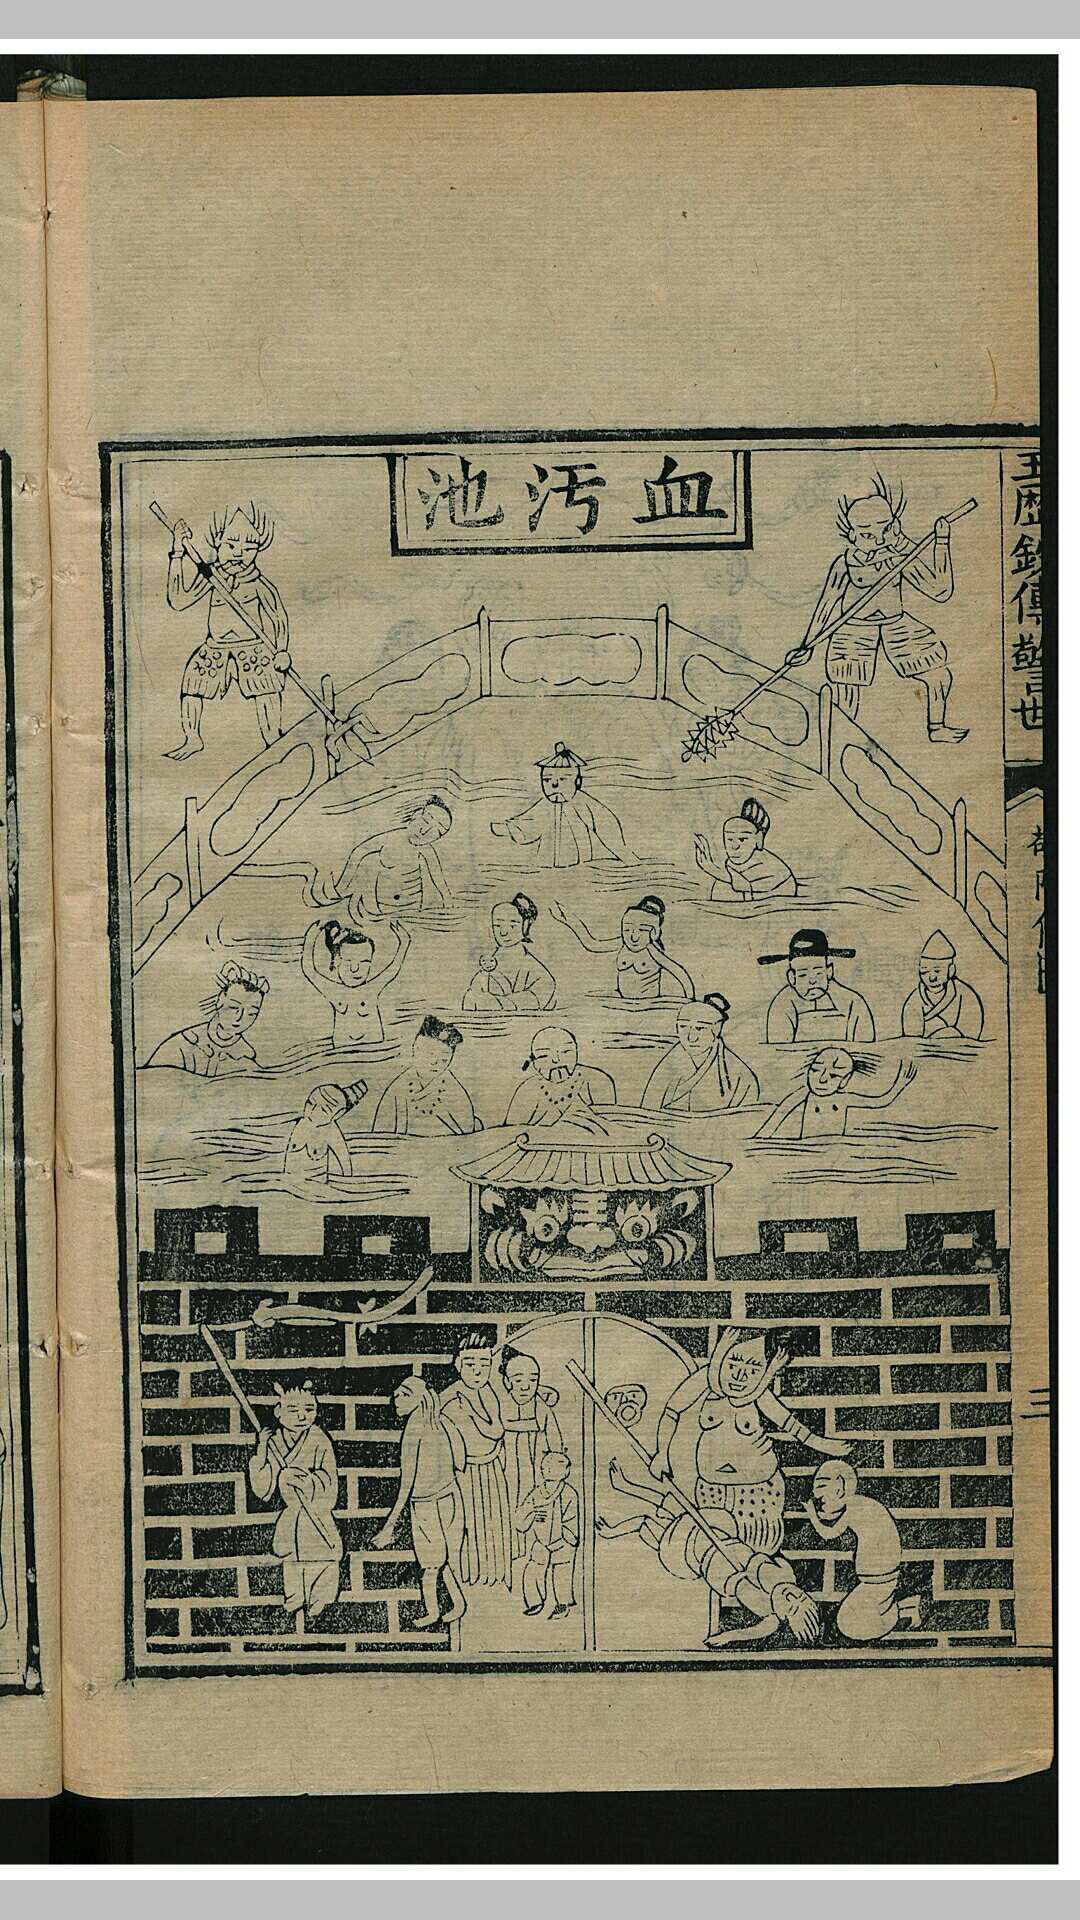 血汚池
玉歷鈔傳警世
二